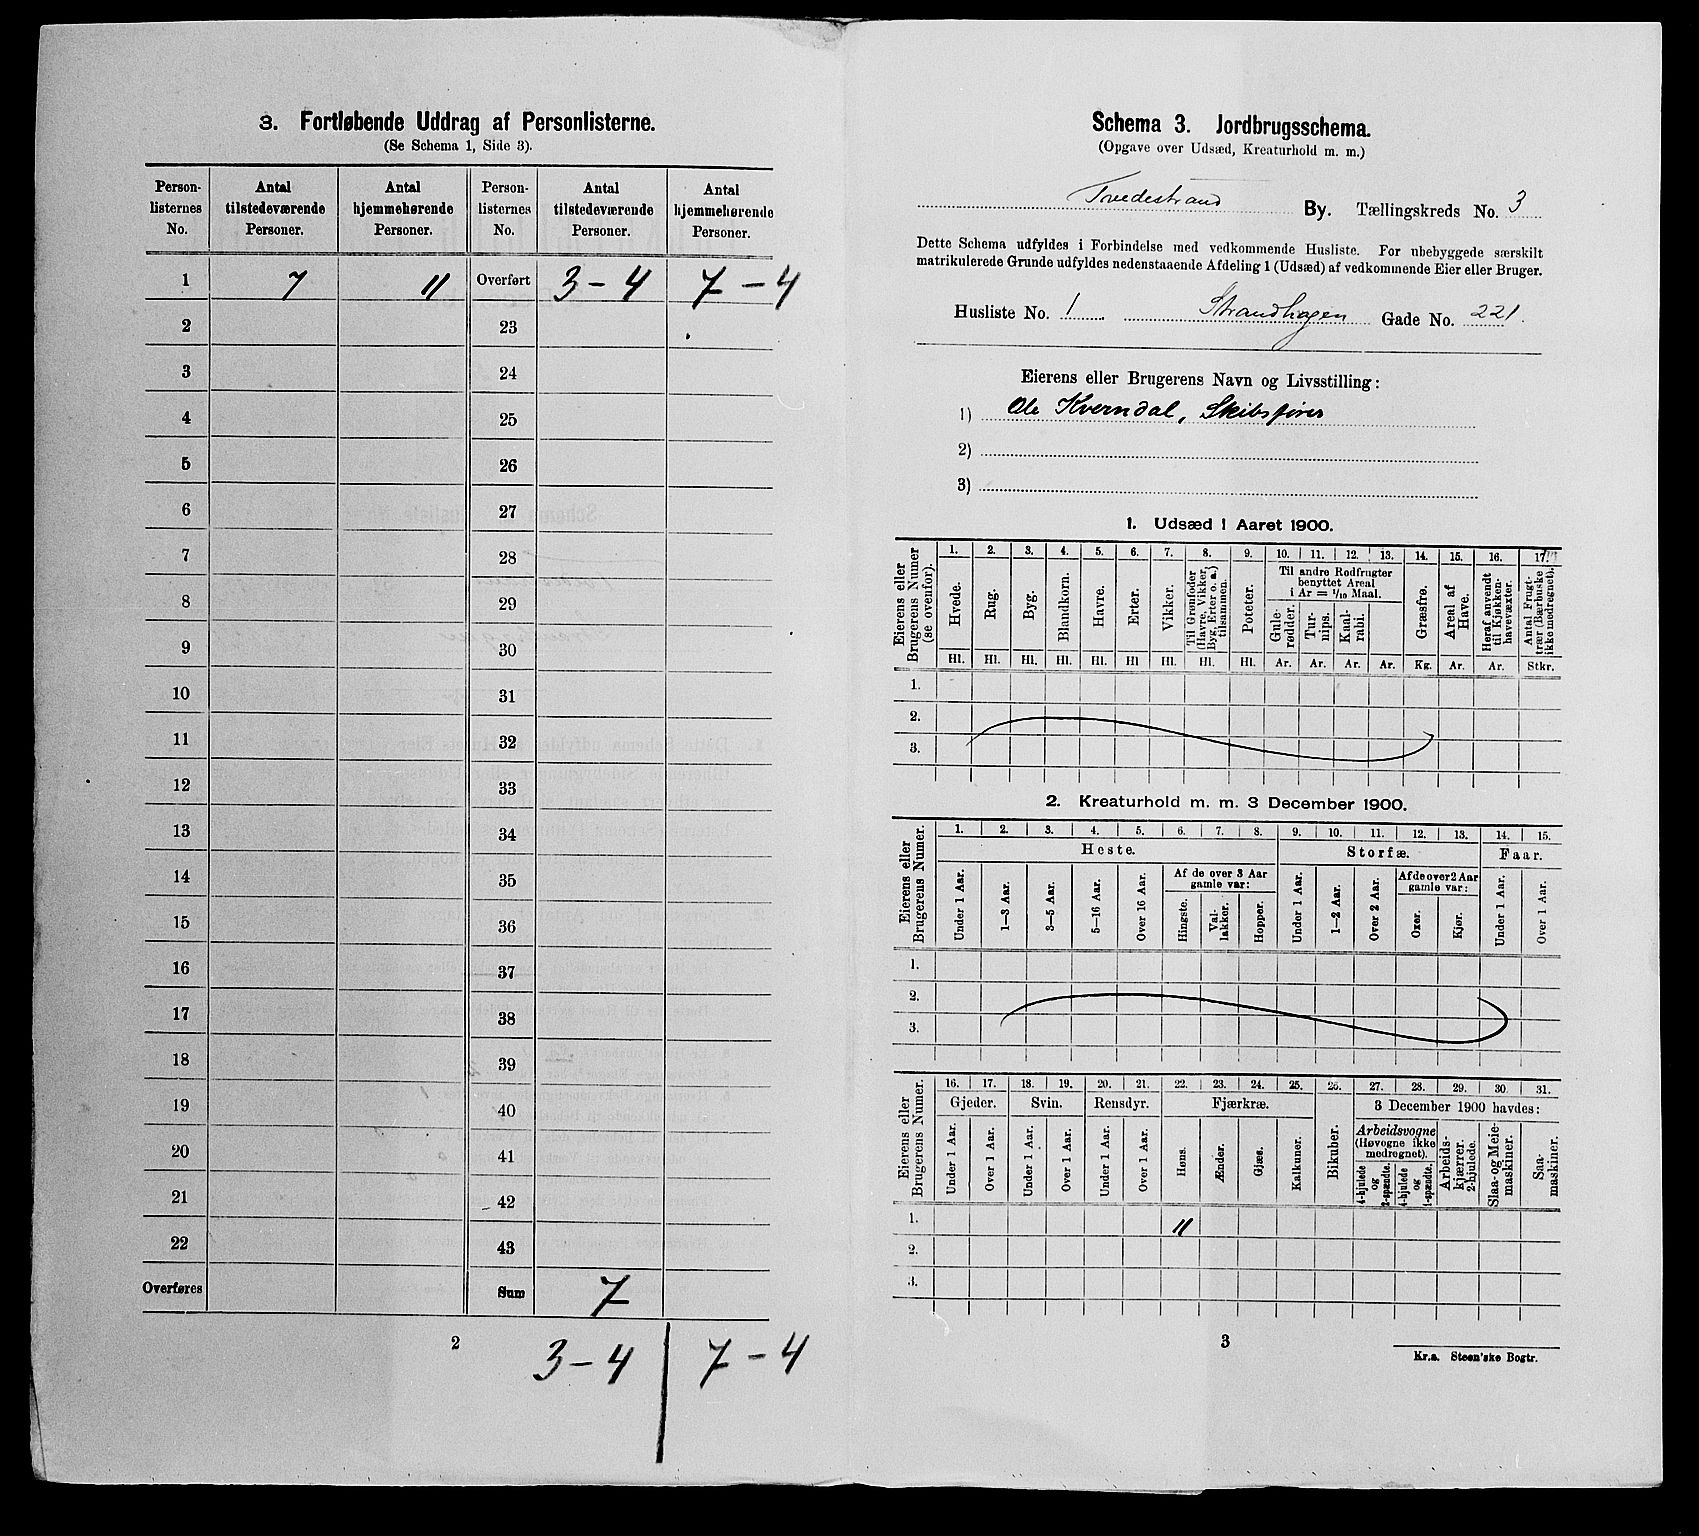 3. Fortløbende Uddrag af Personlisterne.
(Se Schema 1, Side 3).
Person-listernes No. | Antal tilstedeværende Personer. | Antal hjemmehørende Personer. | Person-listernes No. | Antal tilstedeværende Personer. | Antal hjemmehørende Personer.
1 | 7 | 11 | Overført | 3-4 | 7-4
2 | | | 23
3 | | | 24
4 | | | 25
5 | | | 26
6 | | | 27
7 | | | 28
8 | | | 29
9 | | | 30
10 | | | 31
11 | | | 32
12 | | | 33
13 | | | 34
14 | | | 35
15 | | | 36
16 | | | 37
17 | | | 38
18 | | | 39
19 | | | 40
20 | | | 41
21 | | | 42
22 | | | 43
Overføres | | | Sum | 7
2
3-4 | 7-4
Schema 3. Jordbrugsschema.
(Opgave over Udsæd, Kreaturhold m. m.)
Tvedestrand By. Tællingskreds No. 3
Dette Schema udfyldes i Forbindelse med vedkommende Husliste. For ubebyggede særskilt
matrikulerede Grunde udfyldes nedenstaaende Afdeling 1 (Udsæd) af vedkommende Eier eller Bruger.
Husliste No. 1 Strandhagen Gade No. 221.
Eierens eller Brugerens Navn og Livsstilling:
1) Ole Kverndal, Skibsfører
2)
3)
1. Udsæd i Aaret 1900.
Eierens eller Brugerens Numer (se ovenfor).
1. 2. 3. 4. 5. 6. 7. 8. 9. 10. 11. 12. 13. 14. 15. 16. 17.
Til andre Rodfrugter benyttet Areal i Ar = 1/10 Maal.
Hvede. | Rug. | Byg. | Blandkorn. | Havre. | Erter. | Vikker. | Til Grønfoder (Havre, Vikker, Byg, Erter o. a.) tilsammen. | Poteter. | Gule-rødder. | Tur-nips. | Kaal-rabi. | | Græsfrø. | Areal af Have. | Heraf anvendt til Kjøkken-havevæxter. | Antal Frugt-trær (Bærbuske ikke medregnet).
Hl. Hl. Hl. Hl. Hl. Hl Hl. Hl. Hl. Ar. Ar. Ar. Ar. Kg. Ar. Ar. Stkr.
1.
2.
3.
2. Kreaturhold m. m. 3 December 1900.
Eierens eller Brugerens Numer.
1. 2. 3. 4. 5. 6. 7. 8. 9. 10. 11. 12. 13. 14. 15.
Heste. | Storfæ. | Faar.
Af de over 3 Aar gamle var: | Af de over 2 Aar gamle var:
Under 1 Aar. | 1—3 Aar. | 3—5 Aar. | 5—16 Aar. | Over 16 Aar. | Hingste. | Val-lakker. | Hopper. | Under 1 Aar. | 1—2 Aar. | Over 2 Aar. | Oxer. | Kjør. | Under 1 Aar. | Over 1 Aar.
1.
2.
3.
Eierens eller Brugerens Numer.
16. 17. 18. 19. 20. 21. 22. 23. 24. 25. 26. 27. 28. 29. 30. 31.
Gjeder. | Svin. | Rensdyr. | Fjærkræ. | Bikuber. | 3 December 1900 havdes:
Arbeidsvogne (Høvogne ikke medregnet).
Under 1 Aar. | Over 1 Aar. | Under 1 Aar. | Over 1 Aar. | Under 1 Aar. | Over 1 Aar. | Høns. | Ænder. | Gjæs. | Kalkuner. | 4-hjulede og 2-spændte. | 4-hjulede og 1-spændte. | Arbeids-kjærrer, 2-hjulede. | Slaa- og Meie-maskiner. | Saa-maskiner.
1. 11
2.
3.
3
Kr.a. Steen'ske Bogtr.